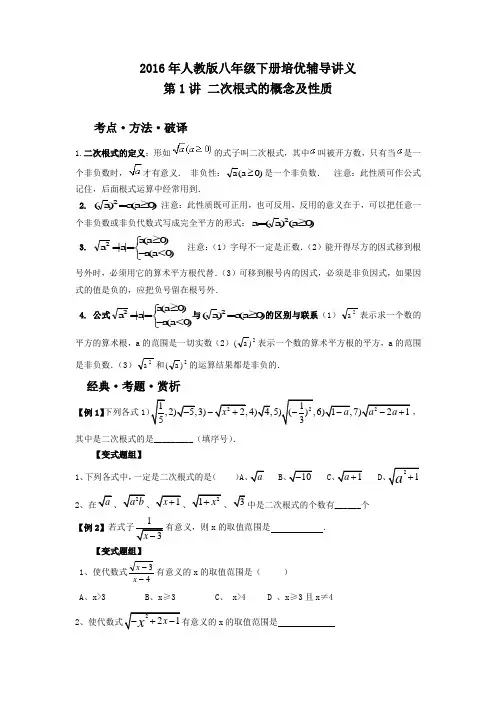 2016年人教版八年级下册培优辅导讲义
第1讲 二次根式的概念及性质
考点·方法·破译
1.二次根式的定义:形如√a(a≥0)的式子叫二次根式,其中a叫被开方数,只有当a是一
个非负数时,√a才有意义. 非负性:√a(a≥0)是一个非负数. 注意:此性质可作公式
记住,后面根式运算中经常用到.
2. (√a)²=a(a≥0) 注意:此性质既可正用,也可反用,反用的意义在于,可以把任意一
个非负数或非负代数式写成完全平方的形式:a=(√a)²(a≥0)
3. √a²=|a|={a(a≥0) -a(a<0) 注意:(1)字母不一定是正数.(2)能开得尽方的因式移到根
号外时,必须用它的算术平方根代替.(3)可移到根号内的因式,必须是非负因式,如果因
式的值是负的,应把负号留在根号外.
4. 公式√a²=|a|={a(a≥0) -a(a<0) 与(√a)²=a(a≥0)的区别与联系(1)√a²表示求一个数的
平方的算术根,a的范围是一切实数(2)(√a)²表示一个数的算术平方根的平方,a的范围
是非负数.(3)√a²和(√a)²的运算结果都是非负的.
经典·考题·赏析
【例1】下列各式1)√(1/5),2)√-5,3)-√(x²+2),4)√4,5)√((-1/3)²),6)√(1-a),7)√(a²-2a+1),
其中是二次根式的是_________(填序号).
【变式题组】
1、下列各式中,一定是二次根式的是( )A、√a B、√-10 C、√(a+1) D、√(a²+1)
2、在√a、√(a²b)、√(x+1)、√(1+x²)、√3中是二次根式的个数有______个
【例2】若式子1/√(x-3)有意义,则x的取值范围是 .
【变式题组】
1、使代数式√(x-3)/(x-4)有意义的x的取值范围是( )
A、x>3 B、x≥3 C、 x>4 D 、x≥3且x≠4
2、使代数式√(-x²+2x-1)有意义的x的取值范围是